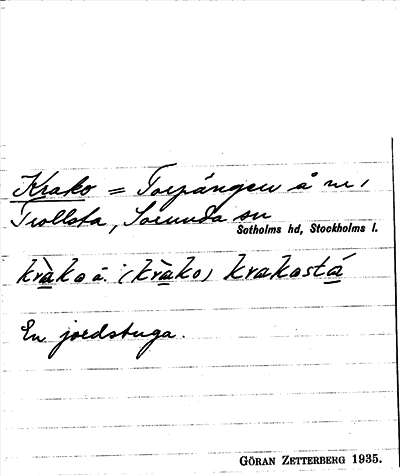 Krako = Torpängen å nr 1
Trollsta, Sorunda sn
Sotholms hd, Stockholms l.
kràko å. (kràko) krakostá
En jordstuga.
GÖRAN ZETTERBERG 1935.